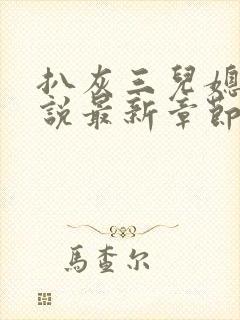 扒灰三兒媳
說最新章節
馬查尔